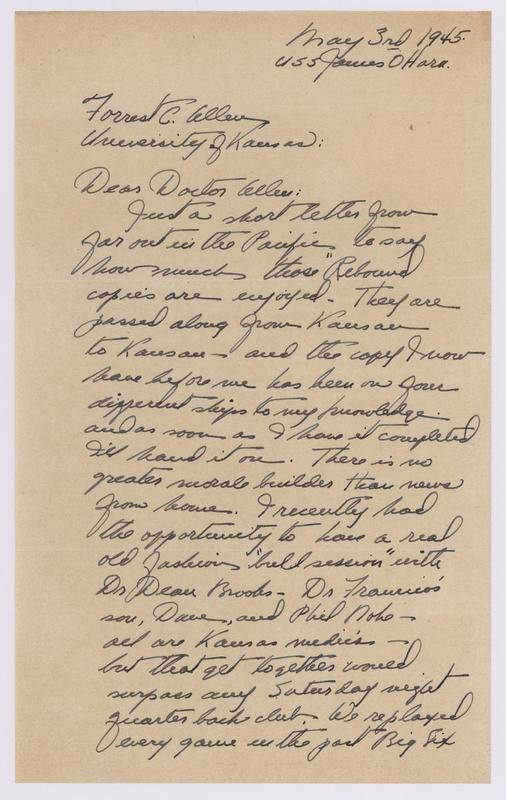 May 3rd 1945.
USS James O'Hara.
Forrest C. Allen
University of Kansas:
Dear Doctor Allen:
Just a short letter from
far out in the Pacific to say
how much those "Rebound
copies are enjoyed - They are
passed along from Kansan
to Kansan - and the copy I now
have before me has been on four
different ships to my knowledge.
and as soon as I have it completed
I'll hand it on. There is no
greater morale builder than news
from home. I recently had
the opportunity to have a real
old fashion "bull session" with
Dr Dean Brooks - Dr
son, Dave, and Phil
all are Kansas medics -
but that get together would
surpass any Saturday night
quarterback club. We replayed
every game in the past Big Six